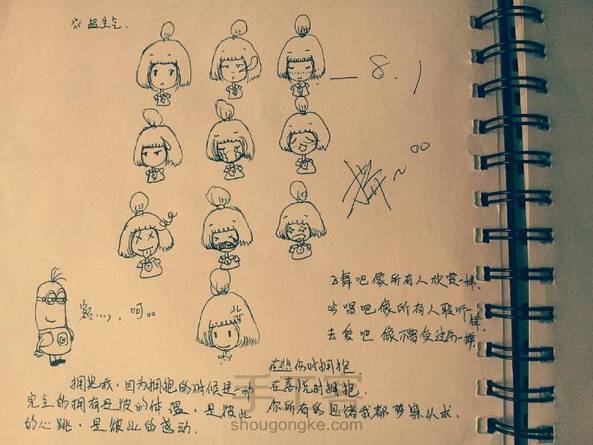 ※ 超生气.
— 8.1
额...., 呵。。
飞舞吧像所有人欣赏一样.
歌唱吧像所有人聆听一样.
去爱吧 像不曾受过伤一样.
拥抱我,因为拥抱的时候是一种
完全的拥有是彼的体温,是彼此
的心跳,是彼此的感动.
在悲伤时拥抱
在喜悦时拥抱.
你所有的思绪我都
手工客
shougongke.com